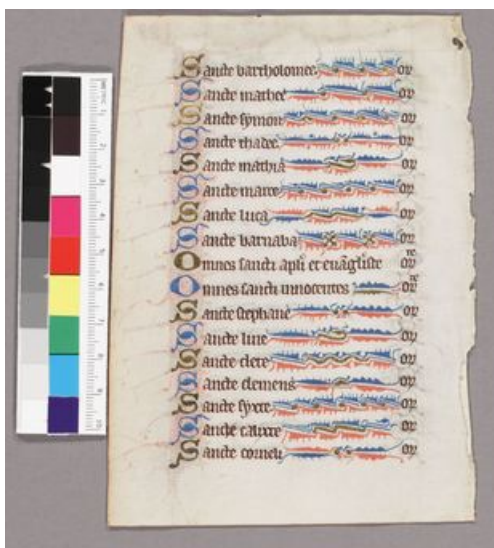 Sancte bartholomee. or
Sancte mathee or
Sancte symon or
Sancte thadee or
Sancte mathia or
Sancte marce or
Sancte luca or
Sancte barnaba or
Omnes sancti apli et evāgliste or
Omnes sancti innocentes or
Sancte stephane or
Sancte line or
Sancte clete or
Sancte clemens or
Sancte syxte or
Sancte calixte or
Sancte corneli or